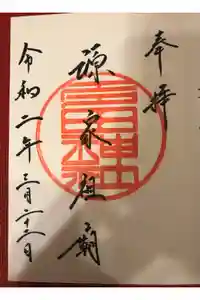 奉拝
源家祖廟
令和二年三月二十二日